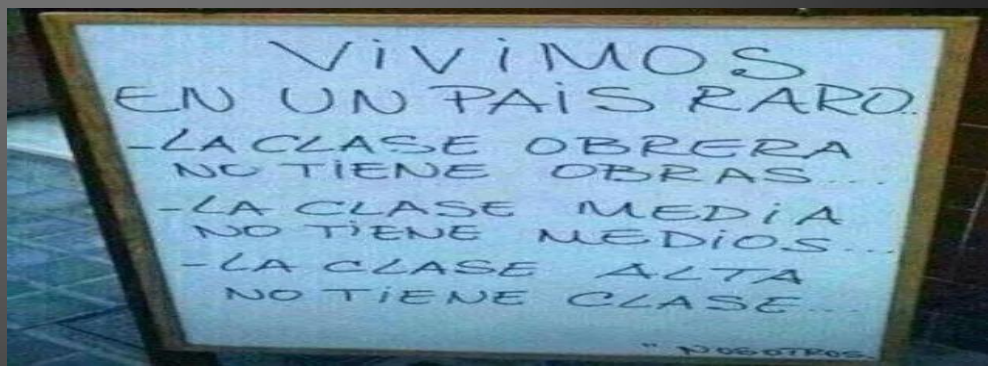 ViViMOS
EN UN PAiS RARO..
-LA CLASE OBRERA
NO TiENE OBRAS....
-LA CLASE MEDiA
NO TiENE MEDiOS...
-LA CLASE ALTA
NO TiENE CLASE...
" NOSOTROS.